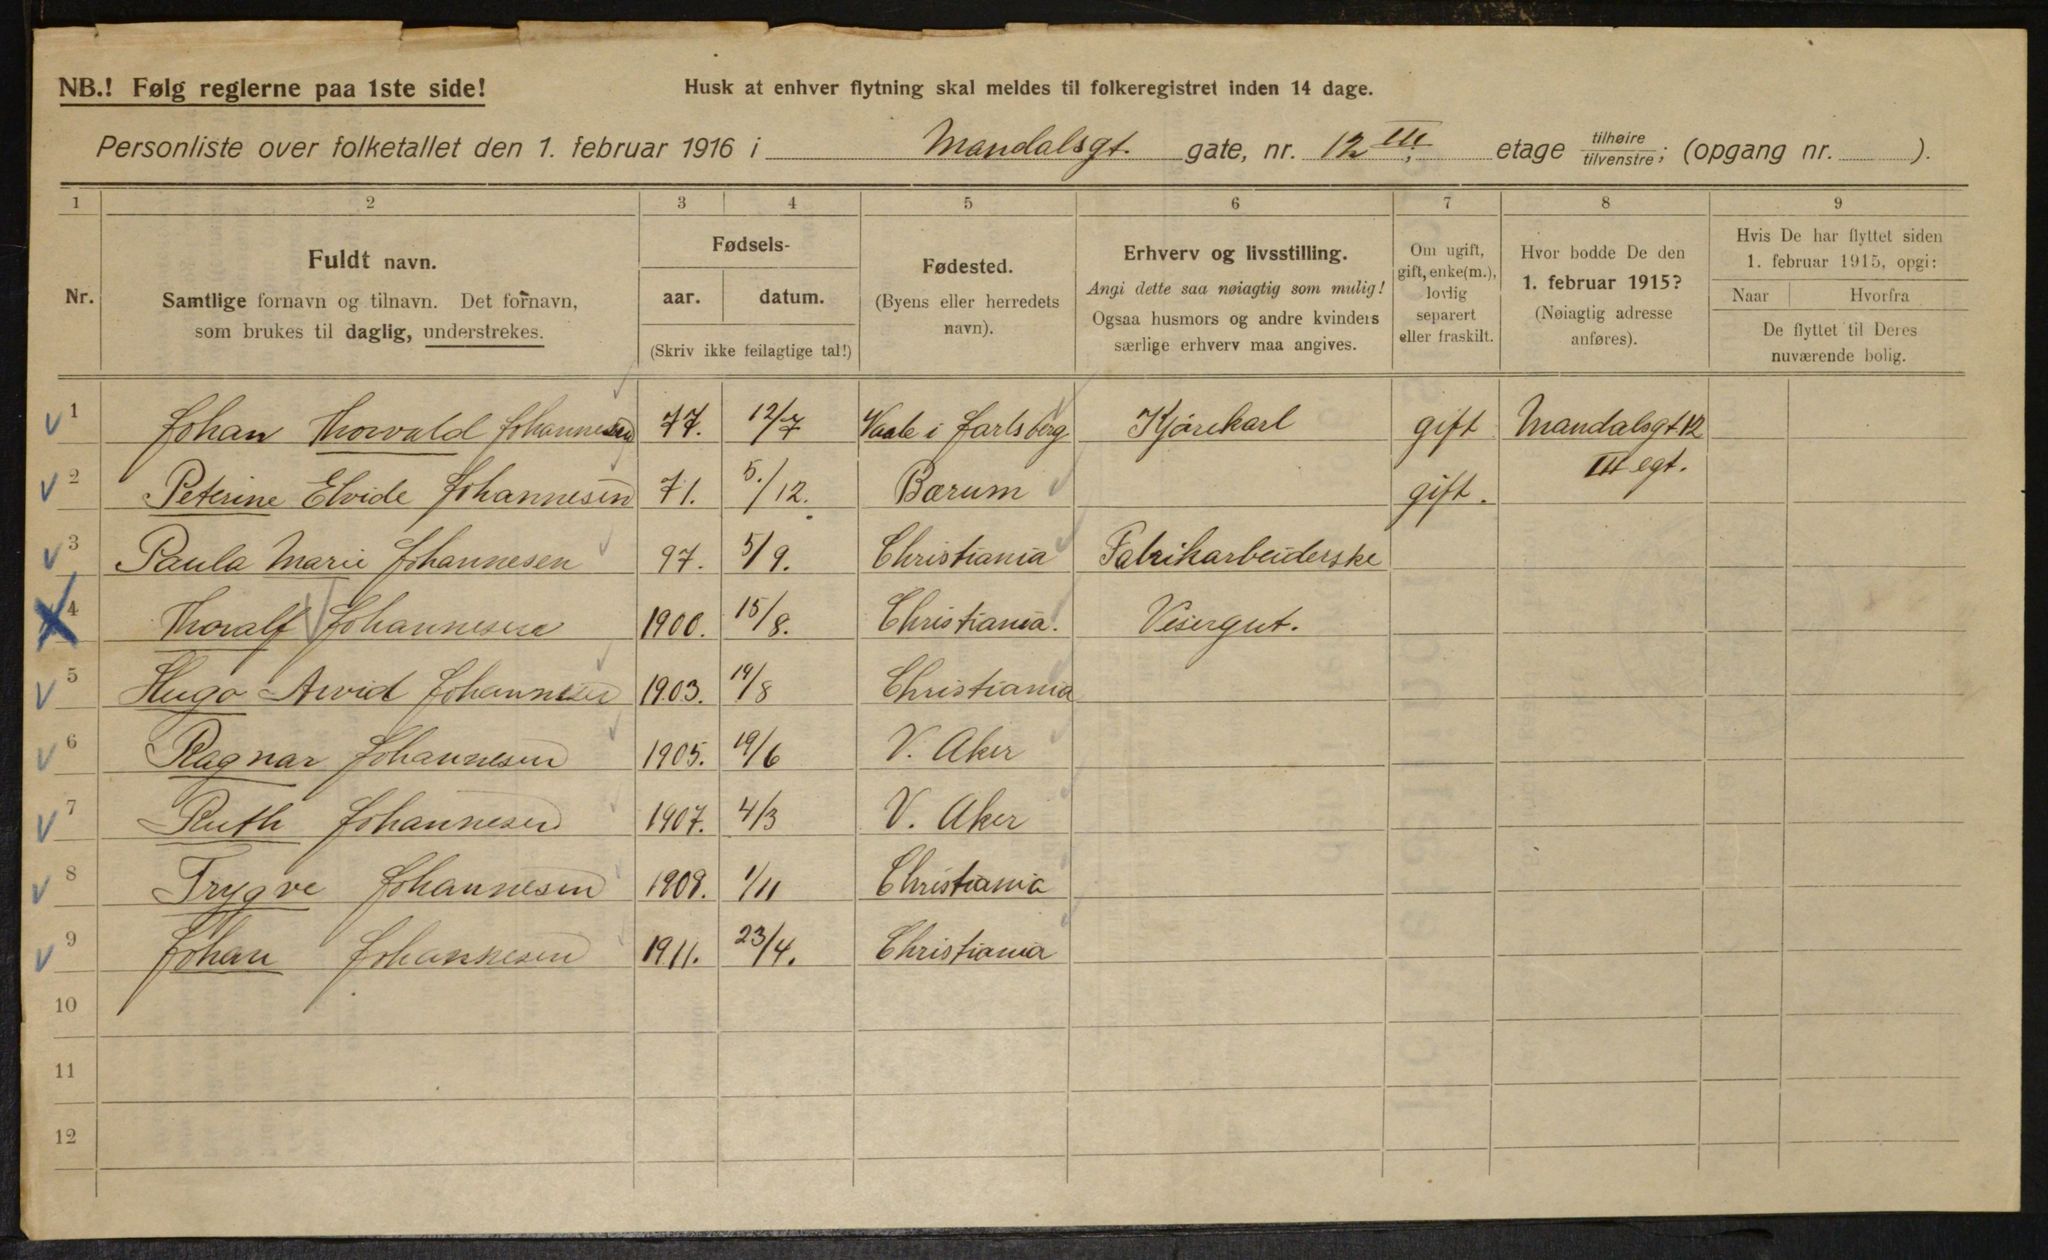 NB.! Følg reglerne paa 1ste side!
Husk at enhver flytning skal meldes til folkeregistret inden 14 dage.
Personliste over folketallet den 1. februar 1916 i Mandalsgt. gate, nr. 12 III, etage tilhøire/tilvenstre; (opgang nr. ).
1 2 3 4 5 6 7 8 9
Nr.
Fuldt navn.
Samtlige fornavn og tilnavn. Det fornavn,
som brukes til daglig, understrekes.
Fødsels-
aar. datum.
(Skriv ikke feilagtige tal!)
Fødested.
(Byens eller herredets
navn).
Erhverv og livsstilling.
Angi dette saa nøiagtig som mulig!
Ogsaa husmors og andre kvinders
særlige erhverv maa angives.
Om ugift,
gift, enke(m.),
lovlig
separert
eller fraskilt.
Hvor bodde De den
1. februar 1915?
(Nøiagtig adresse
anføres).
Hvis De har flyttet siden
1. februar 1915, opgi:
Naar Hvorfra
De flyttet til Deres
nuværende bolig.
1 Johan Thorvald Johannesen 77. 12/7 Vaale i Jarlsberg Kjørekarl gift Mandalsgt. 12
III egt.
2 Peterine Elvide Johannesen 71. 5./12. Bærum gift.
3 Paula Marie Johannesen 97. 5/9. Christiania Fabrikarbeiderske
4 Thoralf Johannesen 1900. 15/8. Christiania. Visergut.
5 Hugo Arvid Johannesen 1903. 19/8 Christiania
6 Ragnar Johannesen 1905. 19/6 V. Aker
7 Ruth Johannesen 1907. 4/3 V. Aker
8 Trygve Johannesen 1908. 1/11 Christiania
9 Johan Johannesen 1911. 23/4. Christiania
10
11
12